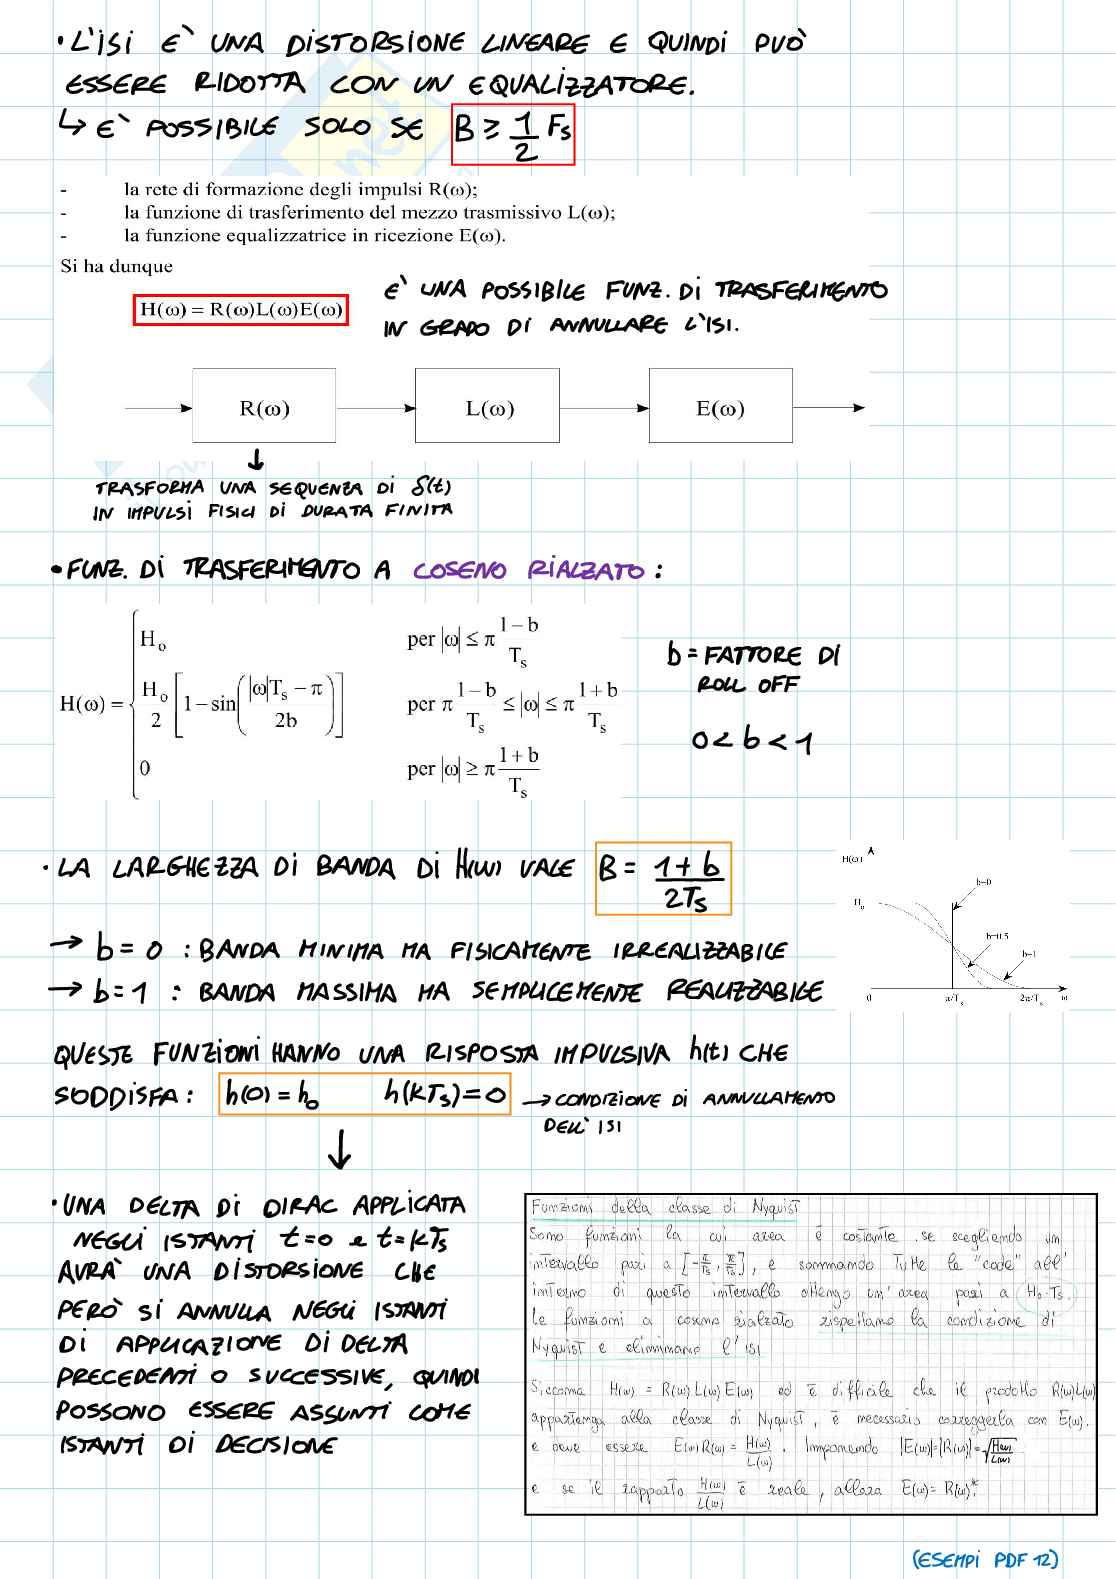 • L'ISI E` UNA DISTORSIONE LINEARE E QUINDI PUÒ
ESSERE RIDOTTA CON UN EQUALIZZATORE.
↳ E` POSSIBILE SOLO SE B ≥ 1/2 Fs
- la rete di formazione degli impulsi R(ω);
- la funzione di trasferimento del mezzo trasmissivo L(ω);
- la funzione equalizzatrice in ricezione E(ω).
Si ha dunque
H(ω) = R(ω)L(ω)E(ω)
E` UNA POSSIBILE FUNZ. DI TRASFERIMENTO
IN GRADO DI ANNULLARE L'ISI.
R(ω) L(ω) E(ω)
↓
TRASFORMA UNA SEQUENZA DI δ(t)
IN IMPULSI FISICI DI DURATA FINITA
• FUNZ. DI TRASFERIMENTO A COSENO RIALZATO :
H(ω) = { H₀ per |ω| ≤ π (1−b)/Ts
H₀/2 [1−sin((|ω|Ts − π)/2b)] per π (1−b)/Ts ≤ |ω| ≤ π (1+b)/Ts
0 per |ω| ≥ π (1+b)/Ts
b = FATTORE DI
ROLL OFF
0 < b < 1
• LA LARGHEZZA DI BANDA DI H(ω) VALE B = (1+b)/2Ts
→ b = 0 : BANDA MINIMA MA FISICAMENTE IRREALIZZABILE
→ b = 1 : BANDA MASSIMA MA SEMPLICEMENTE REALIZZABILE
H(ω)
H₀
b=0
b=0.5
b=1
0 π/Ts 2π/Ts ω
QUESTE FUNZIONI HANNO UNA RISPOSTA IMPULSIVA h(t) CHE
SODDISFA : h(0) = h₀ h(kTs) = 0 → CONDIZIONE DI ANNULLAMENTO
DELL` ISI
↓
• UNA DELTA DI DIRAC APPLICATA
NEGLI ISTANTI t=0 e t=kTs
AVRA` UNA DISTORSIONE CHE
PERÒ SI ANNULLA NEGLI ISTANTI
DI APPLICAZIONE DI DELTA
PRECEDENTI O SUCCESSIVE, QUINDI
POSSONO ESSERE ASSUNTI COME
ISTANTI DI DECISIONE
Funzioni della classe di Nyquist
Sono funzioni la cui area è costante se scegliendo un
intervallo pari a [-π/Ts, π/Ts], e sommando tutte le "code" all'
interno di questo intervallo ottengo un'area pari a H₀·Ts.
Le funzioni a coseno rialzato rispettano la condizione di
Nyquist e eliminano l'ISI
Siccome H(ω) = R(ω) L(ω) E(ω) ed è difficile che il prodotto R(ω)L(ω)
appartenga alla classe di Nyquist, è necessario correggerla con E(ω).
e deve essere E(ω)R(ω) = H(ω)/L(ω). Imponendo |E(ω)|=|R(ω)|=√(H(ω)/L(ω))
e se il rapporto H(ω)/L(ω) è reale, allora E(ω) = R(ω)*.
(ESEMPI PDF 12)